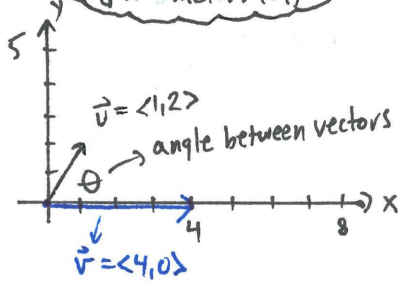 y
5
v⃗ = <1,2>
angle between vectors
θ
x
4
8
v⃗ = <4,0>